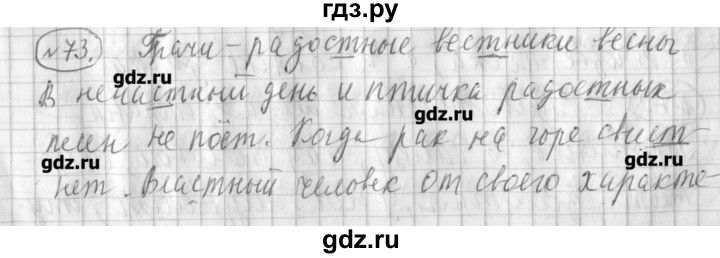 гдз.ру
№73. Грачи – радостные вестники весны
gdz.ru gdz.ru
В ненастный день и птичка радостных
gdz.ru
песен не поёт. Когда рак на горе свист-
gdz.ru gdz.ru
нет. Властный человек от своего характе-
gdz.ru